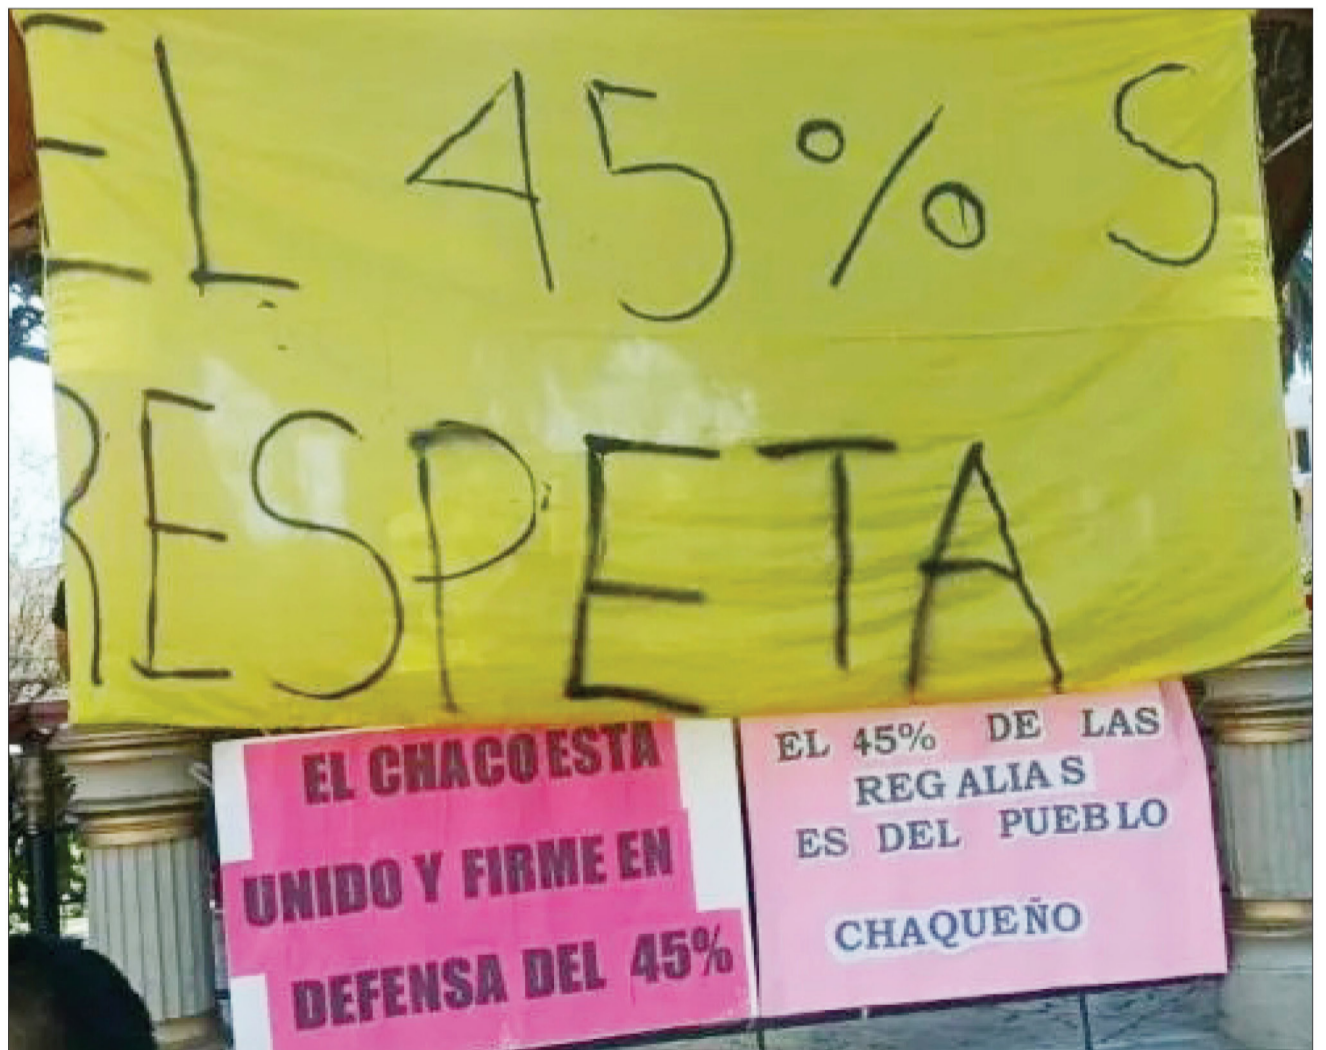 EL 45% S
RESPETA
EL CHACO ESTA
UNIDO Y FIRME EN
DEFENSA DEL 45%
EL 45% DE LAS
REGALIAS
ES DEL PUEBLO
CHAQUEÑO